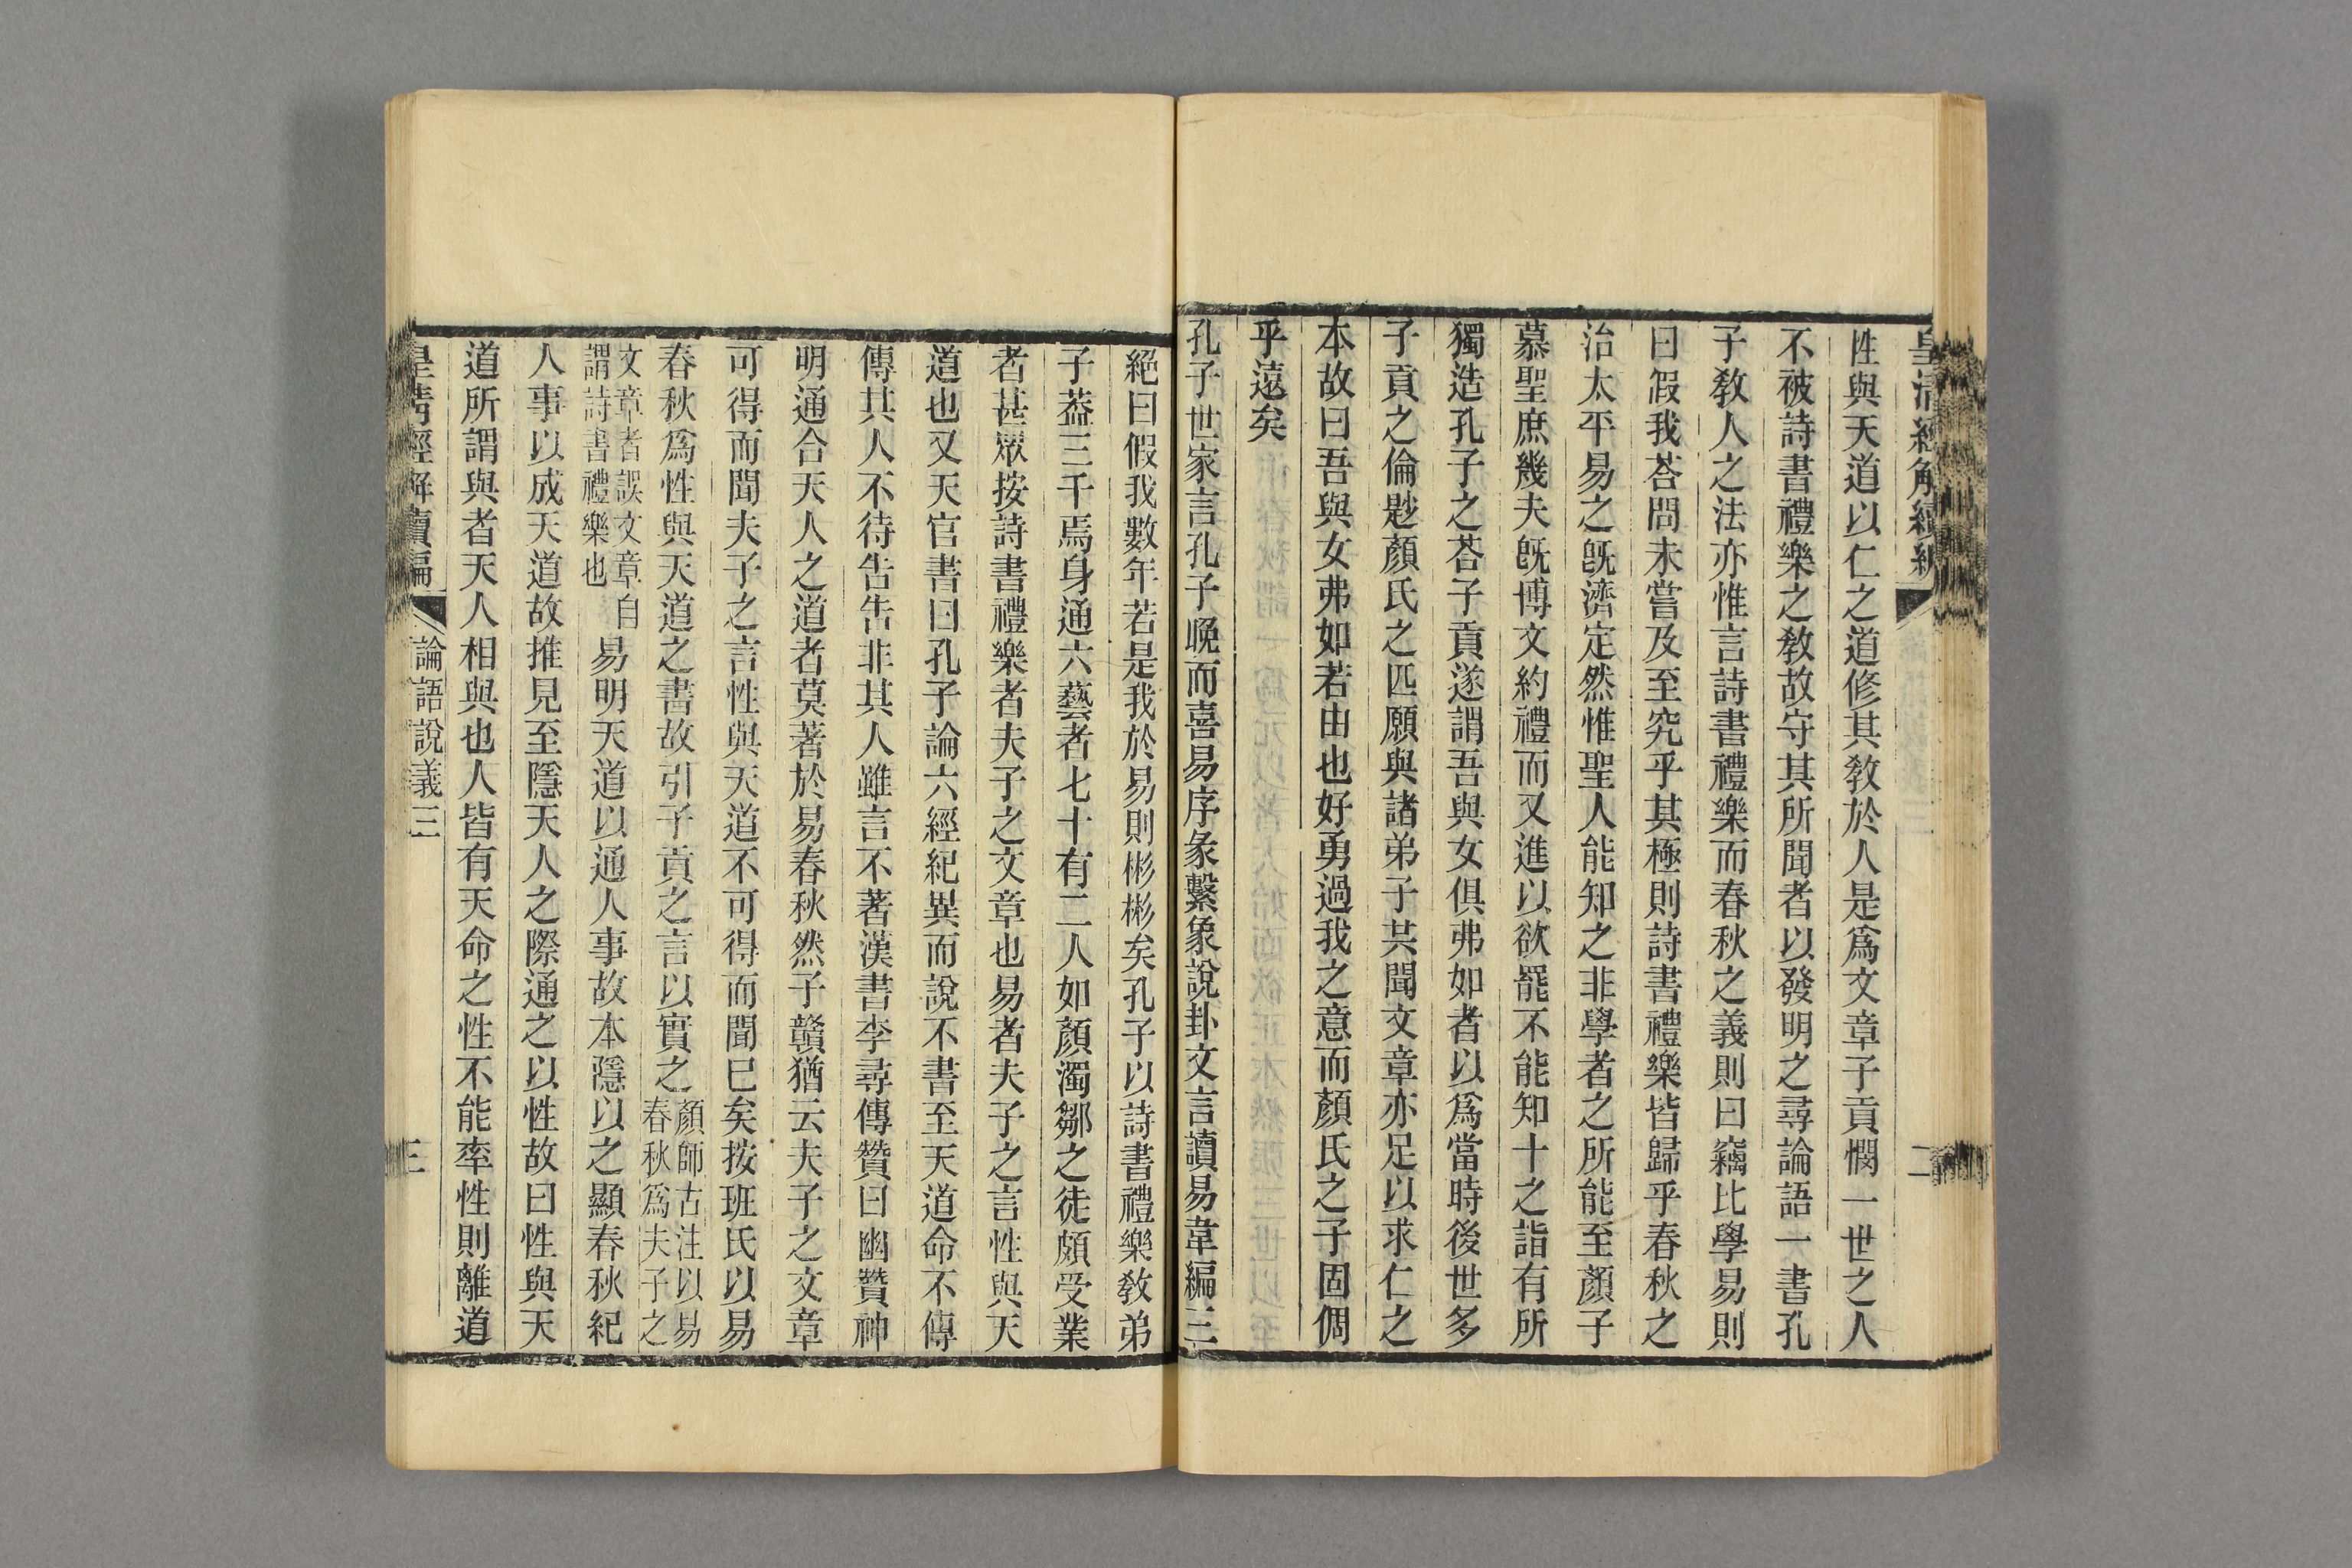 皇清經解續編 二
性與天道以仁之道修其敎於人是爲文章子貢憫一世之人
不被詩書禮樂之敎故守其所聞者以發明之尋論語一書孔
子敎人之法亦惟言詩書禮樂而春秋之義則曰竊比學易則
曰假我荅問未嘗及至究乎其極則詩書禮樂皆歸乎春秋之
治太平易之旣濟定然惟聖人能知之非學者之所能至顏子
慕聖庶幾夫旣博文約禮而又進以欲罷不能知十之詣有所
獨造孔子之荅子貢遂謂吾與女俱弗如者以爲當時後世多
子貢之倫尟顏氏之匹願與諸弟子共聞文章亦足以求仁之
本故曰吾與女弗如若由也好勇過我之意而顏氏之子固倜
乎遠矣
孔子世家言孔子晚而喜易序彖繫象說卦文言讀易韋編三
絕曰假我數年若是我於易則彬彬矣孔子以詩書禮樂敎弟
子葢三千焉身通六藝者七十有二人如顏濁鄒之徒頗受業
者甚眾按詩書禮樂者夫子之文章也易者夫子之言性與天
道也又天官書曰孔子論六經紀異而說不書至天道命不傳
傳其人不待告告非其人雖言不著漢書李尋傳贊曰幽贊神
明通合天人之道者莫著於易春秋然子贛猶云夫子之文章
可得而聞夫子之言性與天道不可得而聞已矣按班氏以易
春秋爲性與天道之書故引子貢之言以實之顏師古注以易春秋爲夫子之
文章者誤文章自謂詩書禮樂也易明天道以通人事故本隱以之顯春秋紀
人事以成天道故推見至隱天人之際通之以性故曰性與天
道所謂與者天人相與也人皆有天命之性不能率性則離道
皇清經解續編 論語說義三 三